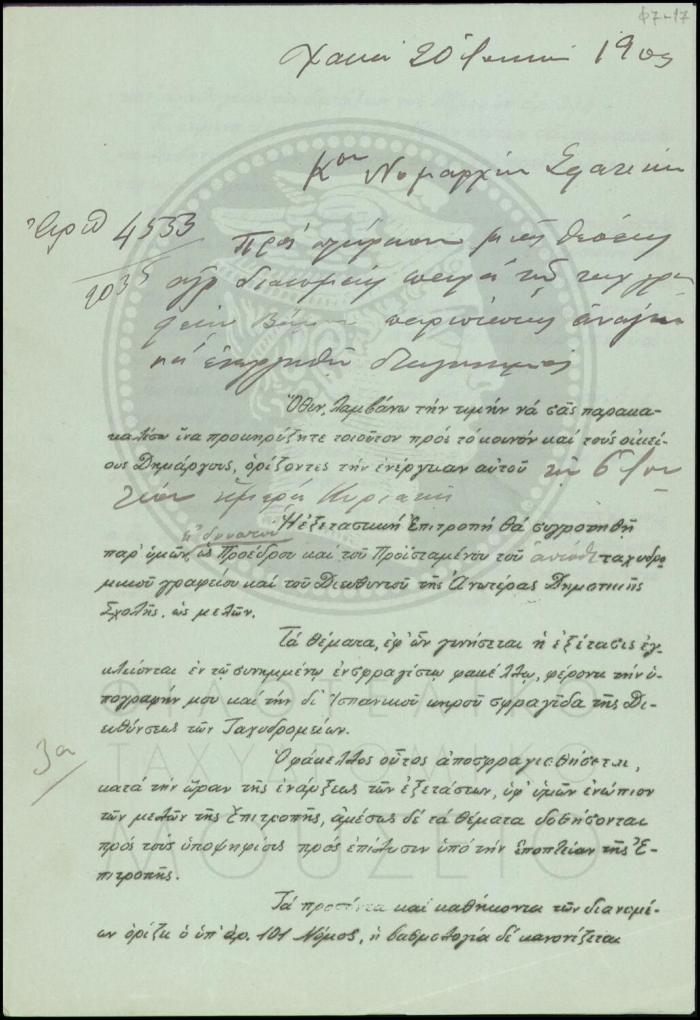 Φ7-17
Χανιά 20 1905
Κον Νομάρχην Σφακίων
4533
2035
Πρός μιάς θέσεως
διανομέως παρά τώ ταχυδρο
περιπτώσει ανάγκη
νά ενεργηθή διαγωνισμός
Όθεν, λαμβάνω τήν τιμήν νά σάς παρακα-
καλέσω ίνα προκηρύξητε τοιούτον πρός τό κοινόν καί τούς οικεί-
ους Δημάρχους, ορίζοντες τήν ενέργειαν αυτού τήν 6
ημέρα Κυριακή
εί δυνατόν
Ή εξεταστική Επιτροπή θά συγροτηθή
παρ' υμών, ώς Προέδρου καί τού Προϊσταμένου τού αυτόθι ταχυδρο
μικού γραφείου καί τού Διευθυντού τής Ανωτέρας Δημοτικής
Σχολής. ώς μελών.
Τά θέματα, εφ' ών γενήσεται η εξέτασις έγ-
κλείονται εν τώ συνημμένω ενσφραγίστω φακέλλω, φέροντι τήν υ-
πογραφήν μου καί τήν δι' Ισπανικού κηρού σφραγίδα τής Δι-
ευθύνσεως τών Ταχυδρομείων.
Ο φάκελλος ούτος αποσφραγισθήσεται,
κατά τήν ώραν τής ενάρξεως τών εξετάσεων, υφ' υμών ενώπιον
τών μελών τής Επιτροπής, αμέσως δέ τά θέματα δοθήσονται
πρός τούς υποψηφίους πρός επίλυσιν υπό τήν εποπτείαν τής Ε-
πιτροπής.
3η
Τά προσόντα καί καθήκοντα τών διανομέ-
ων ορίζει ο υπ' αρ. 101 Νόμος, η βαθμολογία δέ κανονίζεται
ΦΙΛΟΤΕΛΙΚΟ
ΤΑΧΥΔΡΟΜΙΚΟ
ΜΟΥΣΕΙΟ